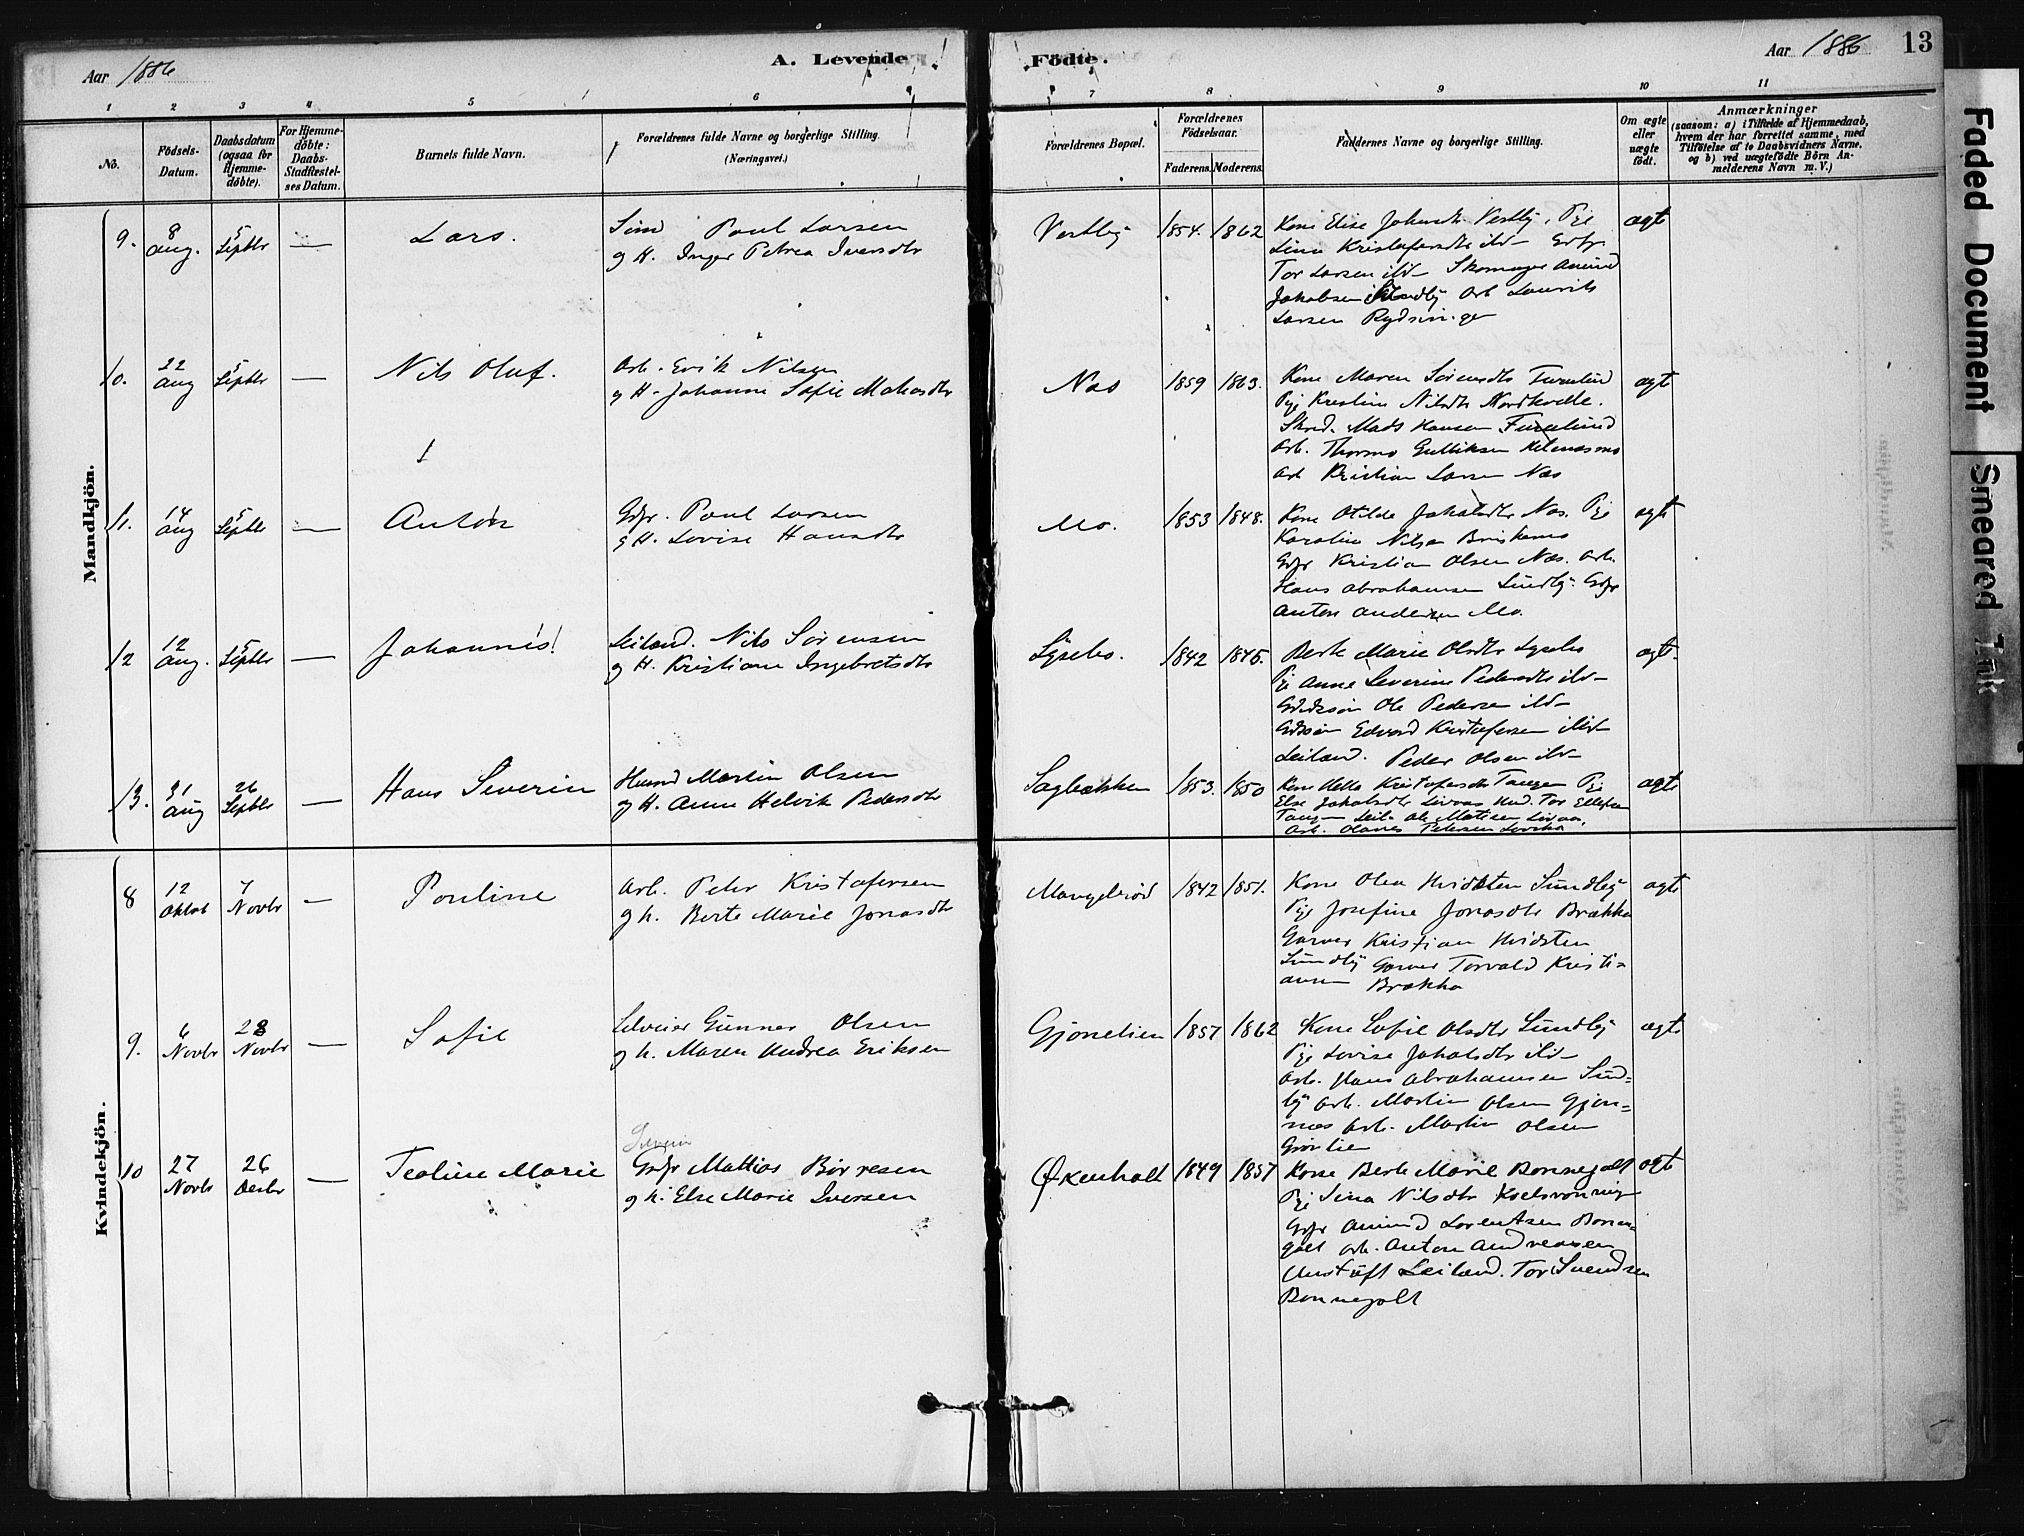 Aar 1886
A. Levende
Fødte.
Aar 1886
13
1 2 3 4 5 6 7 8 9 10 11
No.
Fødsels-
Datum.
Daabsdatum
(ogsaa for
Hjemme-
døbte).
For Hjemme-
døbte:
Daabs-
Stadfæstel-
ses Datum.
Barnets fulde Navn.
Forældrenes fulde Navne og borgerlige Stilling.
(Næringsvei.)
Forældrenes Bopæl.
Forældrenes
Fødselsaar.
Faderens.
Moderens.
Faddernes Navne og borgerlige Stilling.
Om ægte
eller
uægte
født.
Anmærkninger
(saasom: a) i Tilfælde af Hjemmedaab,
hvem der har forrettet samme, med
Tilføielse af to Daabsvidners Navne,
og b) ved uægtefødte Børn An-
melderens Navn m. V.)
Mandkjön.
9. 8 Aug. 5 Septbr — Lars.
Paul Larsen
g H. Inger Petrea Iversdtr
Vestby 1854. 1862
Kone Elise Vestby. Pige
Lina Kristofersdtr ibd Grbr
Tor Larsen ibd Skomager Amund
Jakobsen Sundby Arb Laurits
Larsen
ægte
10. 22 Aug 5 Septbr — Nils Oluf.
Arb. Erik Nilsen
g H. Johanne Sofie
Næs 1859 1863.
Kone Maren Sørensdtr
Pige Kristine Nilsdtr
Mads Hansen Furulund
Arb. Gulliksen
Arb Kristian Larsen Næs
ægte
11. 14 Aug 5 Septbr — Anton
Grbr. Paul Larsen
g H. Lovise Hansdtr
Mo. 1853 1848.
Kone Otilde Jakobsdtr Næs. Pige
Karoline Nilsen
Grbr Kristian Olsen Næs. Arb.
Hans Abrahamsen Sundby. Grbr
Anton Andersen Mo.
ægte
12 12 Aug. 5 Septbr — Johannes!
Leiland. Nils Sørensen
g H. Kristiane Ingebretsdtr
Lysebo. 1842 1845.
Berte Marie Olsdtr Lysebo
Pige Anne Severine Pedersdtr ibd
Ole Pedersen ibd
Edvard Kristofersen ibid
Leiland. Peder Olsen ibd
ægt.
13. 31 Aug 26 Septbr — Hans Severin
Husmd Martin Olsen
g H. Anne Helvik Pedersdtr
Sagbakken 1853. 1850
Kone Helle Kristofersdtr Tangen Pige
Else Jakobsdtr Hmd. Tor Ellefsen
Tangen Leil. Ole Matisen
Arb. Petersen
ægte
Kvindekjön.
8 12 Oktob 7 Novbr — Pouline
Arb. Peter Kristofersen
g h. Berte Marie Jonasdtr
Mangelrød 1842 1851.
Kone Olea Hvidsten Sundby
Pige Josefine Jonasdtr Brækka
Garver Kristian Hvidsten
Sundby Garver Torvald Kristi=
ansen Brækka
ægte
9. 6 Novbr 28 Novbr — Sofie
Gunner Olsen
g h. Maren Andrea Eriksen
Gjønelien 1857 1862
Kone Sofie Olsdtr Sundby
Pige Lovise Jakobsdtr ibd
Arb. Hans Abrahamsen Sund=
by Arb. Martin Olsen Gjøn=
næs Arb. Martin Olsen
Grønlie
ægte
10 27 Novbr 26 Decbr — Teoline Marie
Grbr Mattias Børresen
g h. Else Marie Iversen
Økenholt 1849 1857
Kone Berte Marie Bonnegolt
Pige Lina Nilsdtr
Grbr Amund Lorentsen Bonne=
golt Arb. Anton Andreassen
Leiland. Tor Svendsen
Bonnegolt
ægte
Faded Document
Smeared Ink